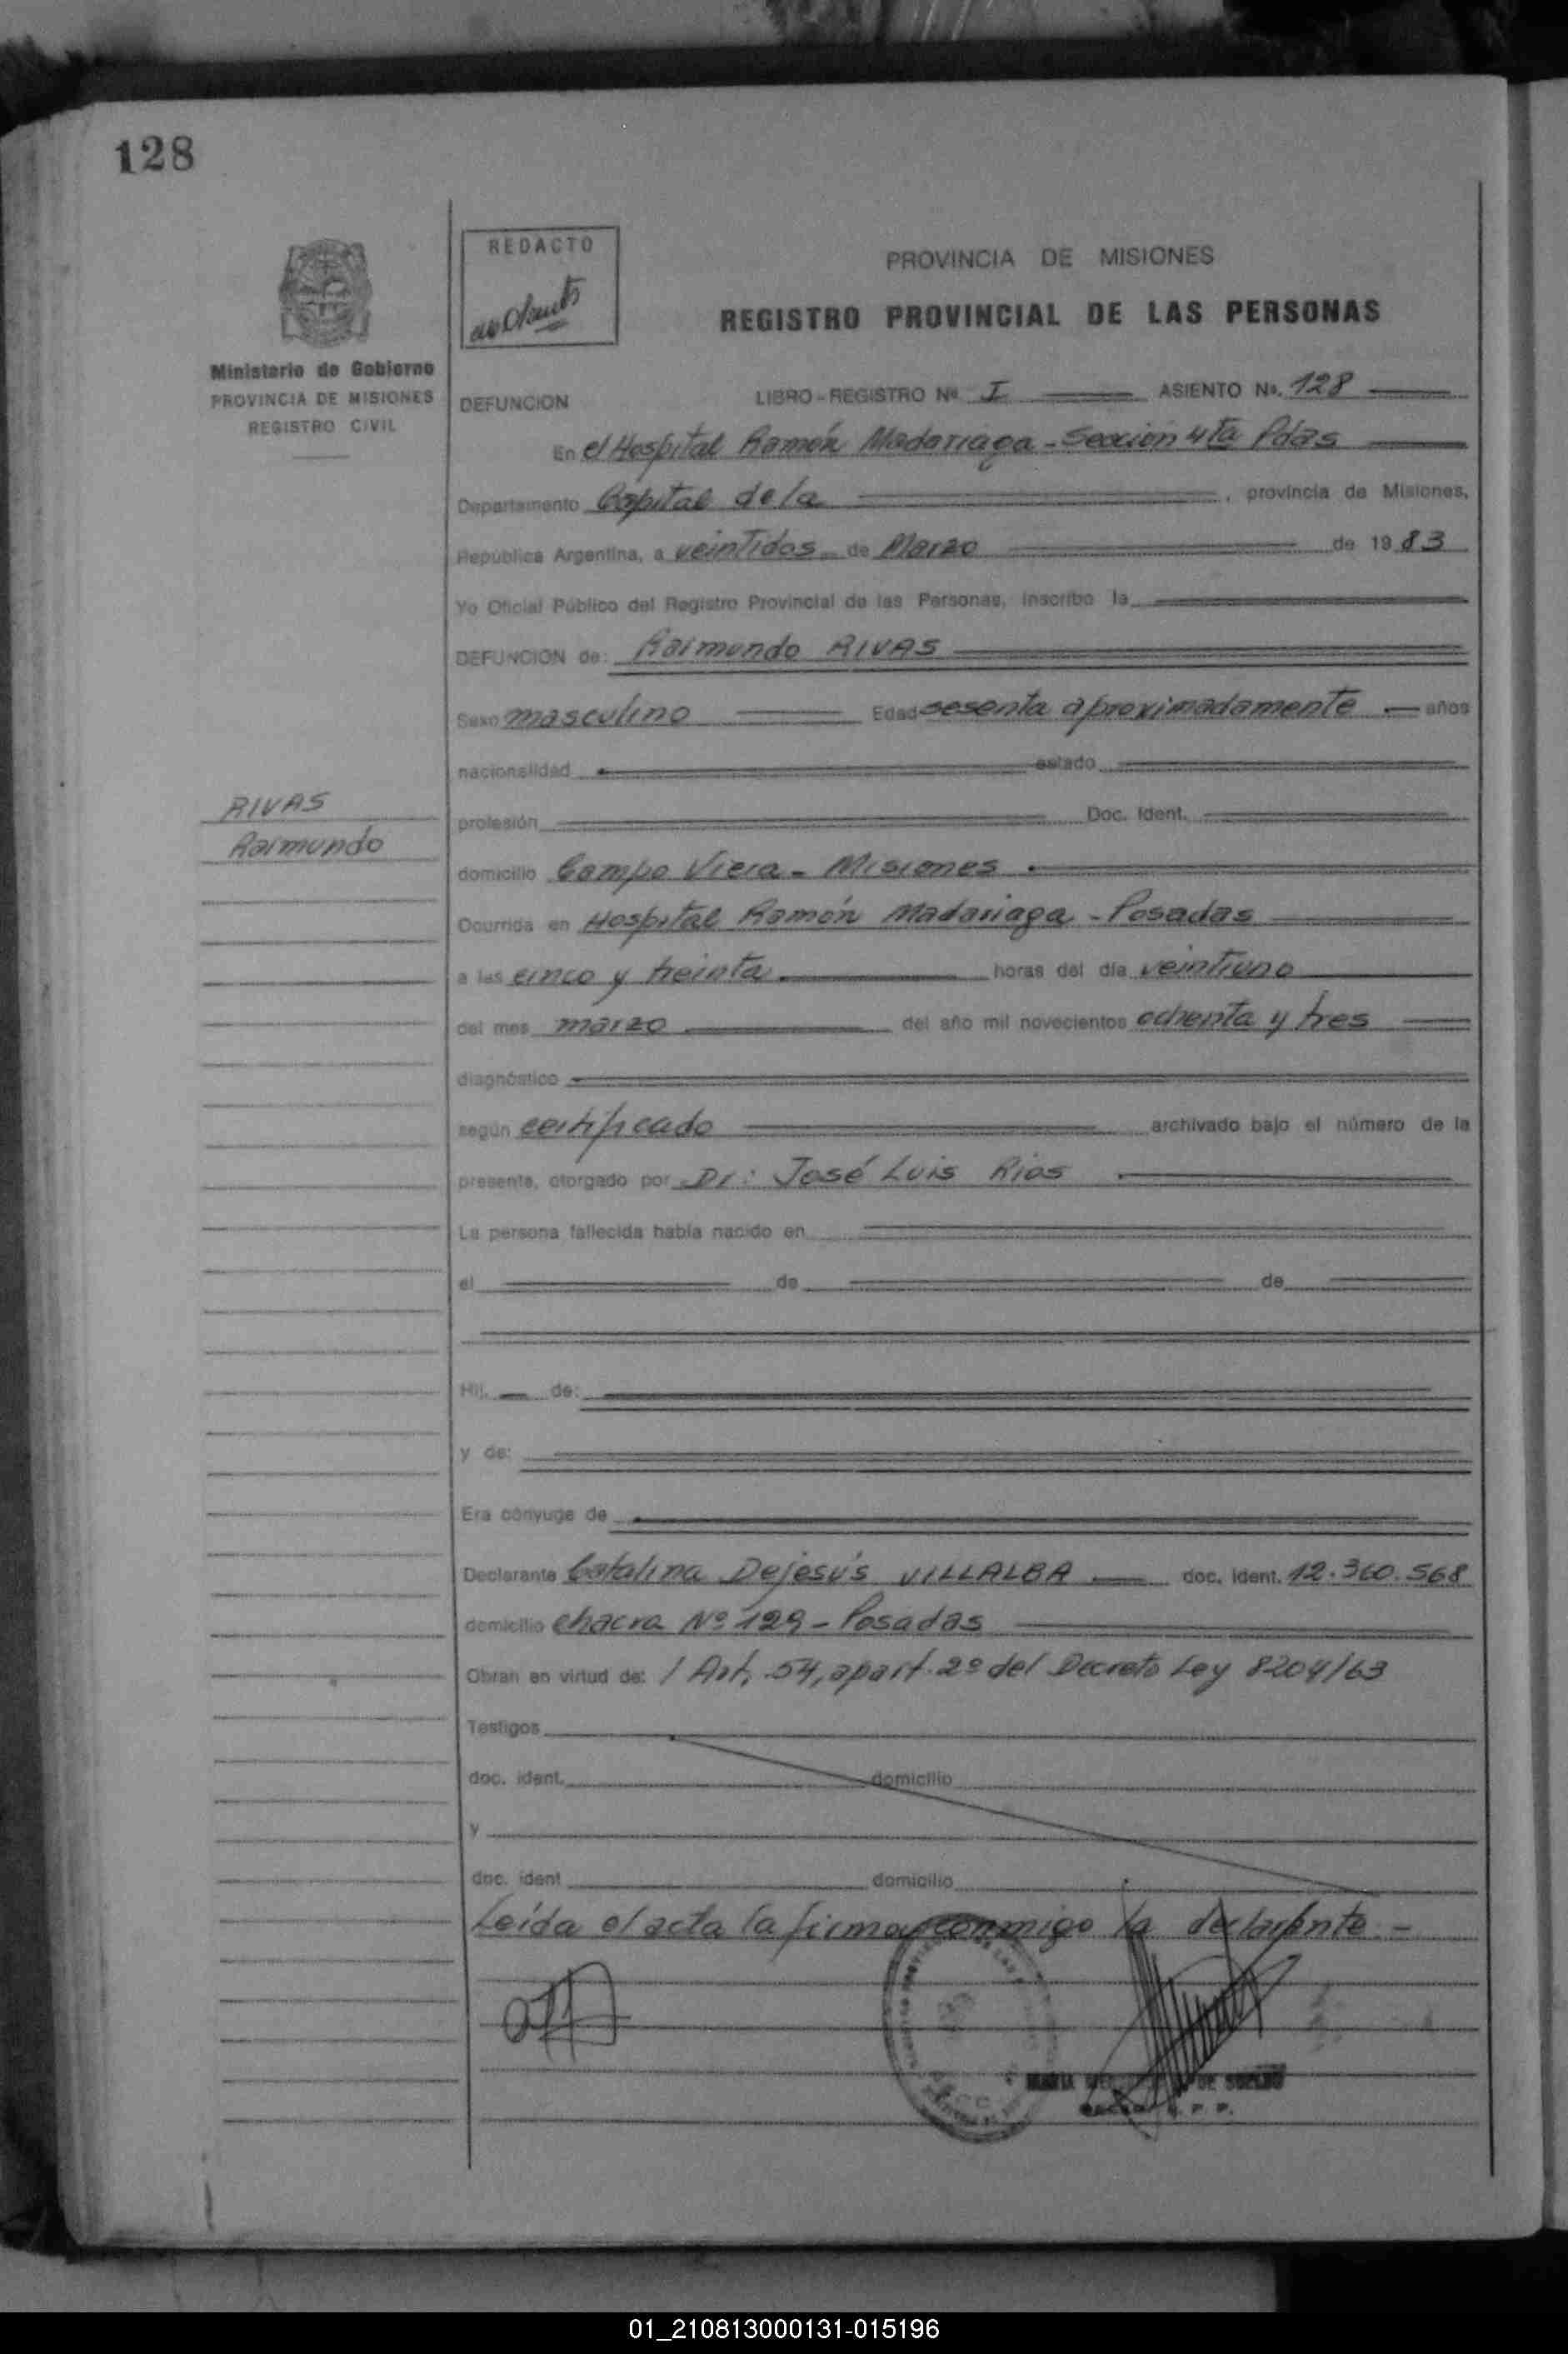 128
REDACTO
PROVINCIA DE MISIONES
REGISTRO PROVINCIAL DE LAS PERSONAS
Ministerio de Gobierno
PROVINCIA DE MISIONES
REGISTRO CIVIL
DEFUNCION LIBRO-REGISTRO Nº I ASIENTO Nº. 128
En el Hospital Ramón Madariaga - Sección 4ta Pdas
Departamento Capital de la, provincia de Misiones,
República Argentina, a veintidos de Marzo de 1983
Yo Oficial Público del Registro Provincial de las Personas, inscribo la
DEFUNCION de: Raimundo RIVAS
Sexo masculino Edad sesenta aproximadamente años
nacionalidad estado
RIVAS
Raimundo
profesión Doc. Ident.
domicilio Campo Viera - Misiones
Ocurrida en Hospital Ramón Madariaga - Posadas
a las cinco y treinta horas del día veintiuno
del mes marzo del año mil novecientos ochenta y tres
diagnóstico
según certificado archivado bajo el número de la
presente, otorgado por Dr: José Luis Rios
La persona fallecida había nacido en
el de de
Hij. de:
y de:
Era cónyuge de
Declarante Catalina Dejesús VILLALBA doc. ident. 12.360.568
domicilio chacra Nº 129 - Posadas
Obran en virtud de: / Art. 54, apart. 2º del Decreto Ley 8204/63
Testigos
doc. ident. domicilio
y
doc. ident domicilio
Leída el acta la firma conmigo la declarante.-
MARIA DE
01_210813000131-015196